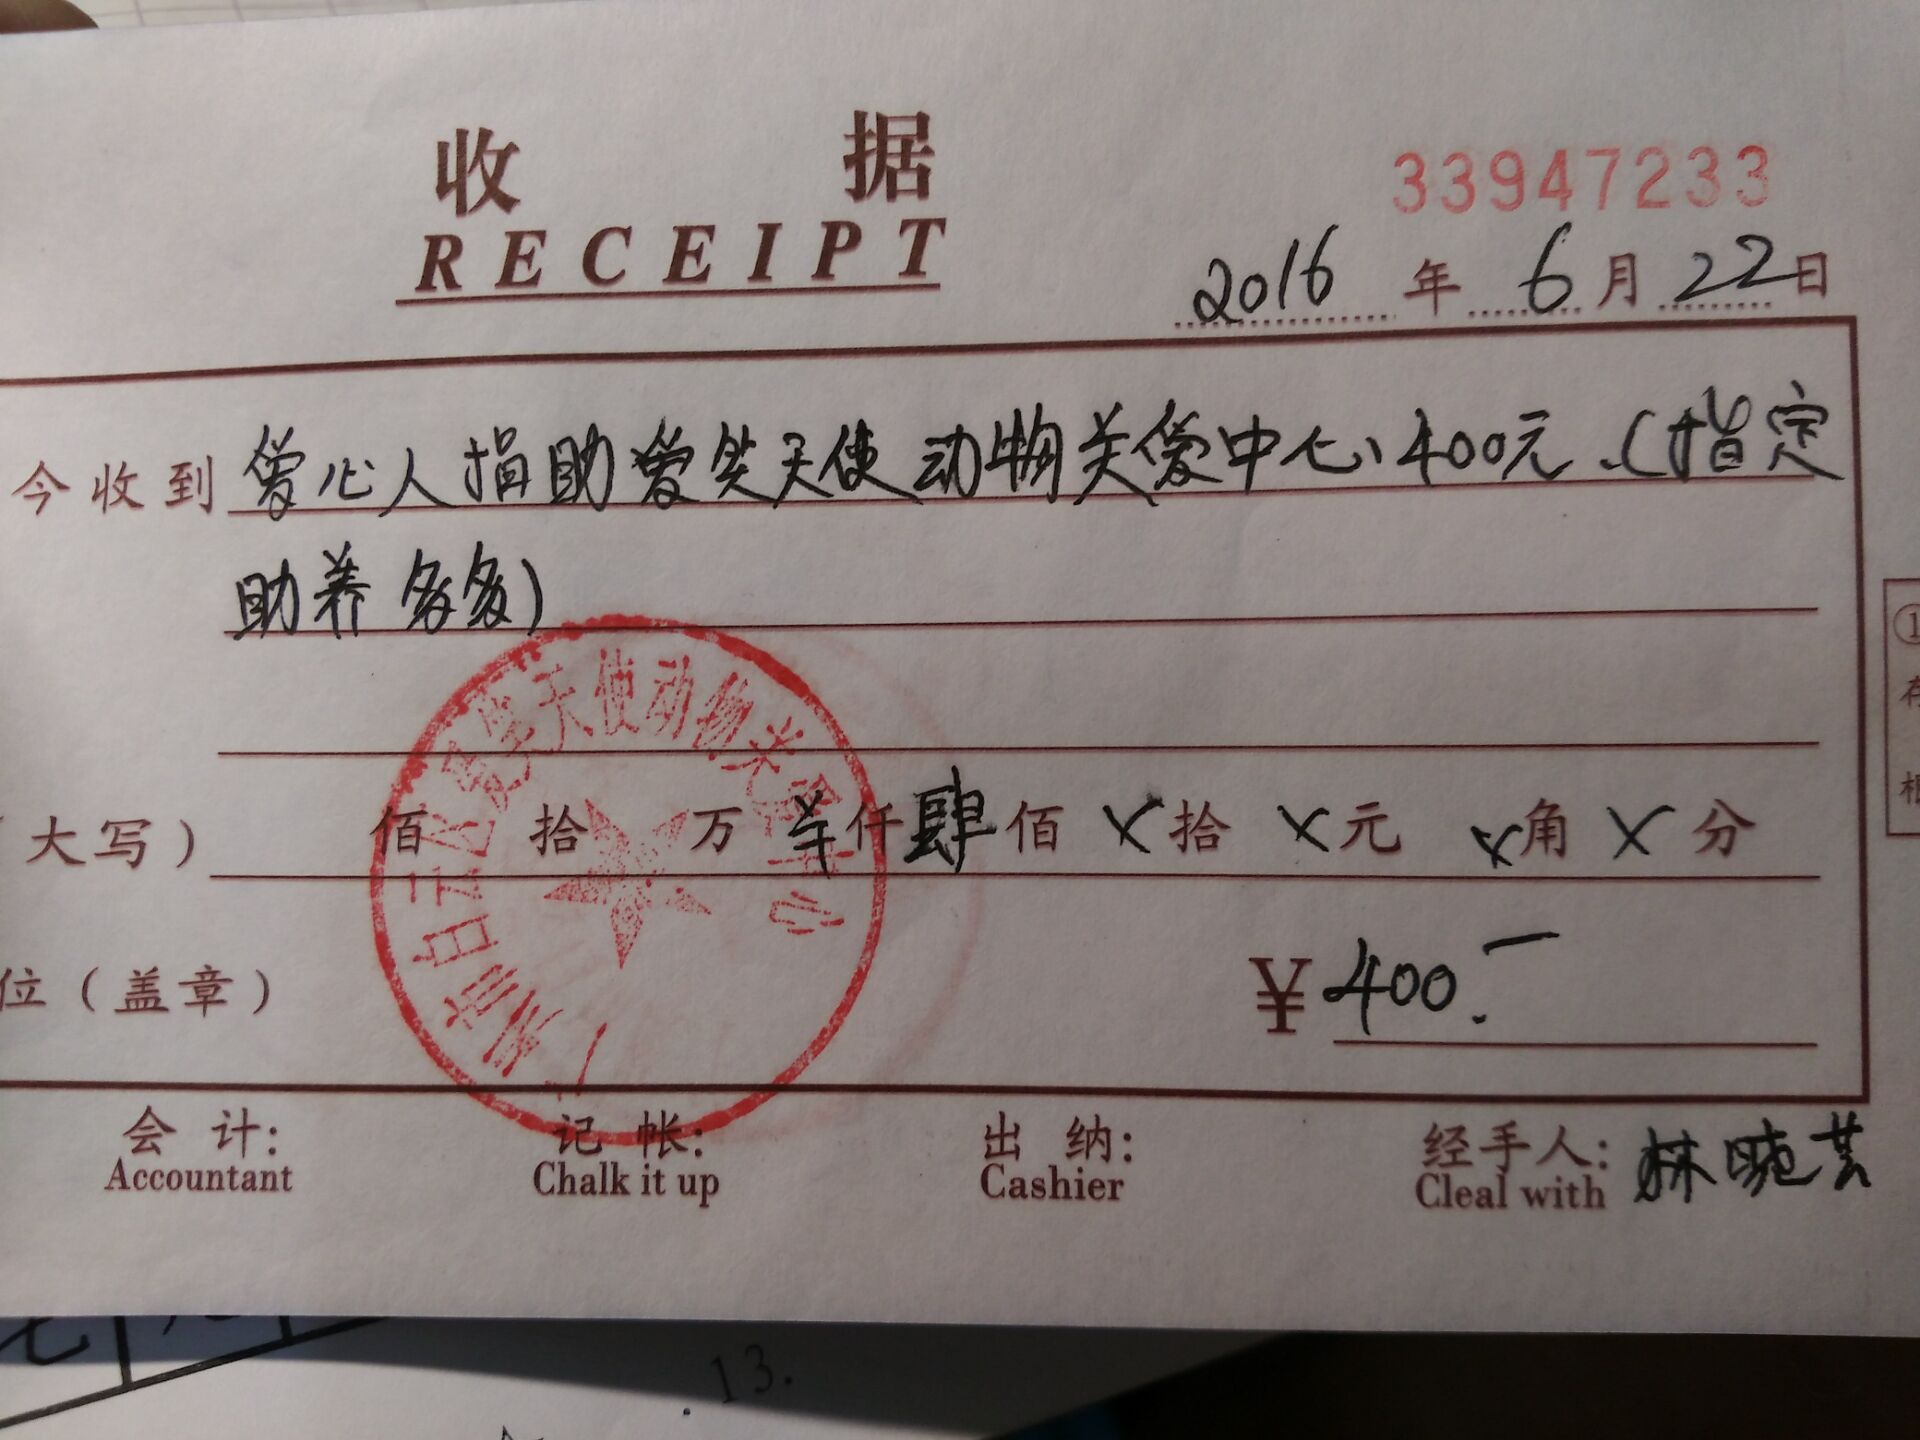 收 据
RECEIPT
33947233
2016 年 6 月 22 日
今收到 爱心人捐助爱笑天使动物关爱中心400元.(指定
助养多多)
(大写) 佰 拾 万 羊 仟 肆 佰 X 拾 X 元 X 角 X 分
位(盖章)
¥ 400.一
广州市白云区爱笑天使动物关爱中心
会 计: 记 帐: 出 纳: 经手人: 林晼芸
Accountant Chalk it up Cashier Cleal with
①
存
根
13.